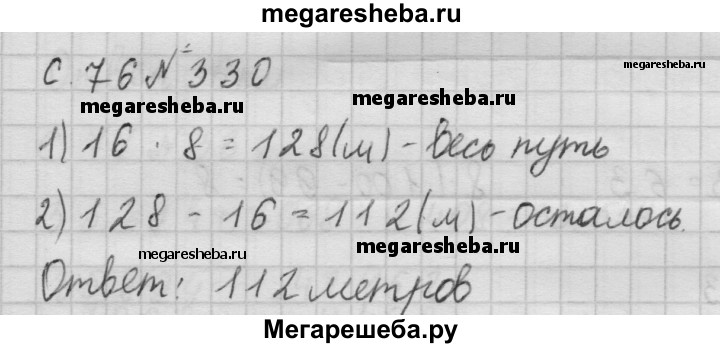 megaresheba.ru
с. 76 № 330
megaresheba.ru
megaresheba.ru
megaresheba.ru
1) 16 · 8 = 128(м) - весь путь
2) 128 - 16 = 112(м) - осталось.
megaresheba.ru
megaresheba.ru
Ответ: 112 метров
Мегарешеба.ру